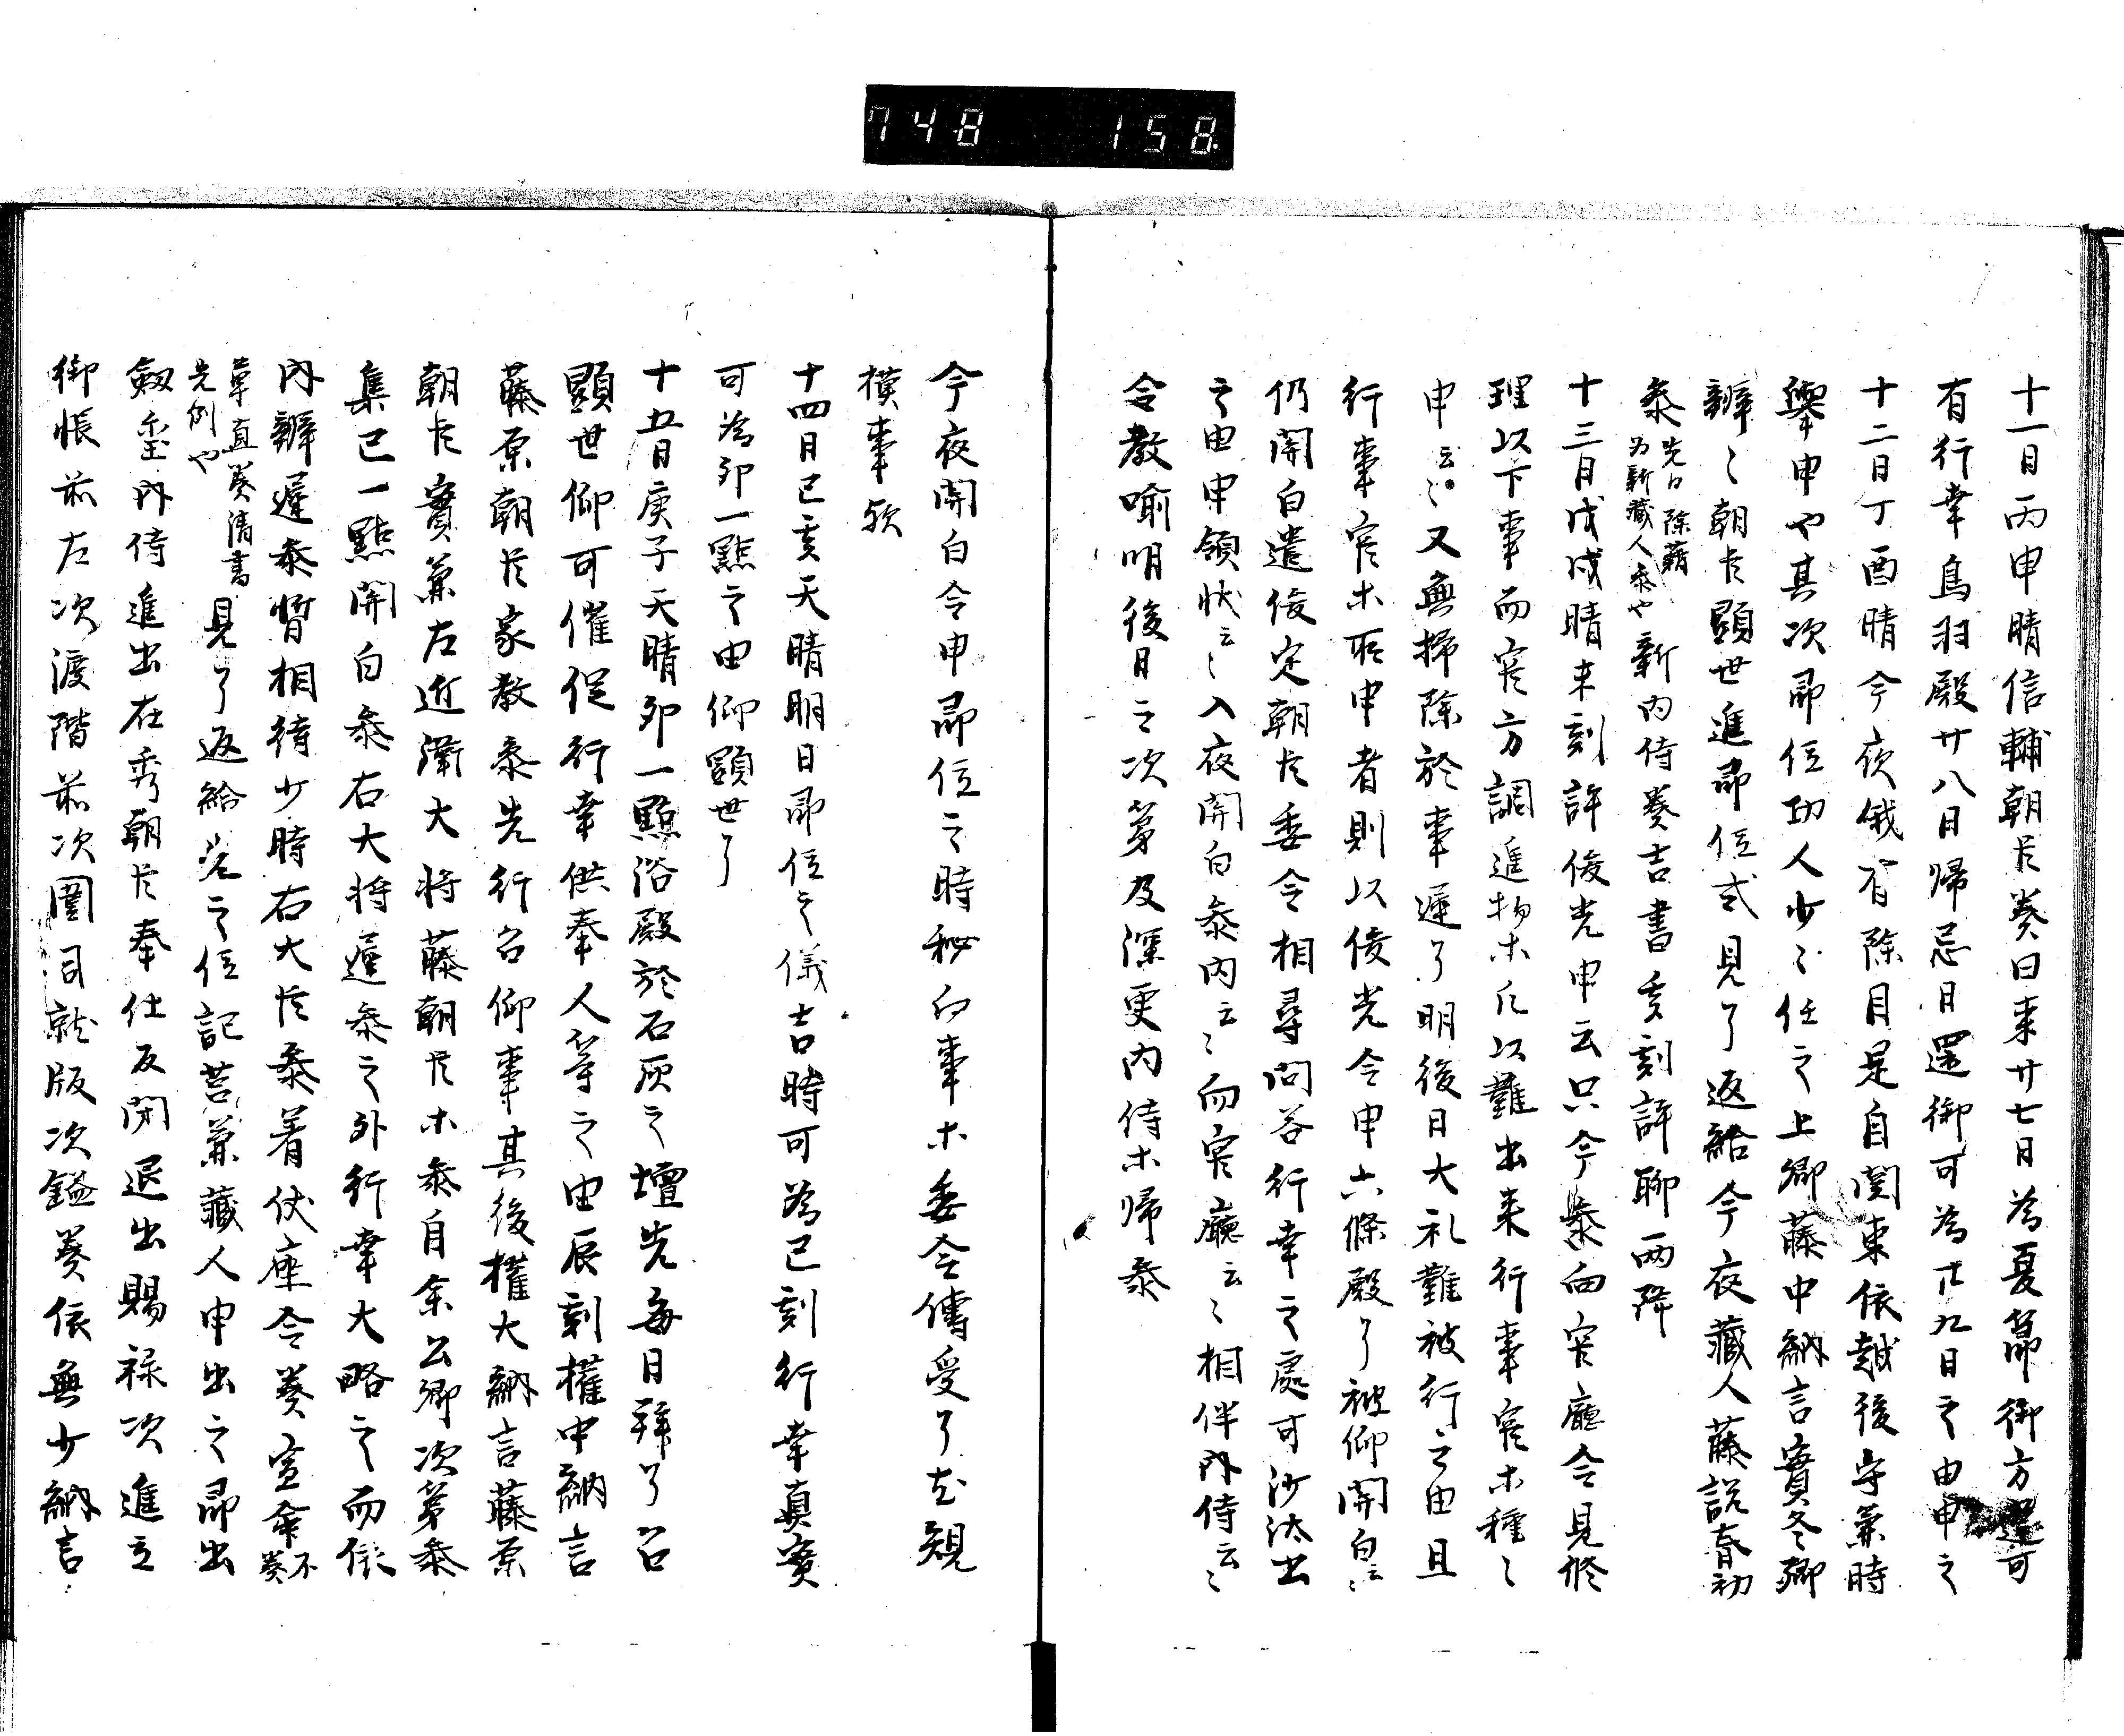 748 158
十一日丙申晴信輔朝臣奏曰来廿七日為夏節御方違可
有行幸鳥羽殿廿八日帰忌日還御可為廿九日之由申之
十二日丁酉晴今夜俄有除目是自関東依越後守兼時
挙申也其次即位功人少々任之上卿藤中納言實冬卿
辨々朝臣顕世進即位式見了返給今夜蔵人藤説春初
参先日除籍為新蔵人参也新内侍奏吉書亥刻許聊雨降
十三日戊戌晴未刻許俊光申云只今参向官廳令見修
理以下事而官方調進物ホ凡以難出来行事官ホ種々
申云々又無掃除於事遅了明後日大礼難被行之由且
行事官ホ所申者則以俊光令申六條殿了被仰関白云々
仍関白遣俊定朝臣委令相尋問答行幸之處可沙汰出
之由申領状云々入夜関白参内云々而官廳云々相伴内侍云々
令教喩明後日之次第及深更内侍ホ帰参
今夜関白令申即位之時秘印事ホ委令傳受了尤規
模事歟
十四日己亥天晴明日即位之儀吉時可為巳刻行幸真實
可為卯一點之由仰顕世了
十五日庚子天晴卯一點浴殿於石灰之壇先毎日拜了召
顕世仰可催促行幸供奉人等之由辰刻權中納言
藤原朝臣家教参先行召仰事其後權大納言藤原
朝臣實兼左近衛大将藤朝臣ホ参自余公卿次第参
集巳一點関白参右大将遅参之外行幸大略之而依
内辨遅参暫相待少時右大臣参着伏座令奏宣命不奏
草直奏清書先例也見了返給之位記莒兼蔵人申出之即出
劔璽内侍進出在秀朝臣奉仕反閇退出賜禄次進立
御帳前左次渡階前次闈司就版次鎰奏依無少納言